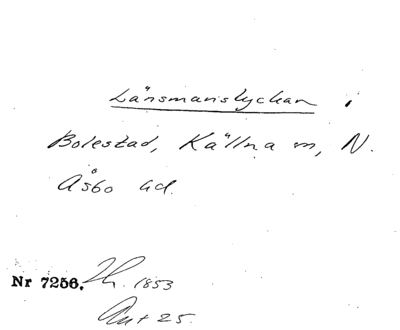 Länsmanslyckan i
Bolestad, Källna m, N.
Åsbo hd.
Nr 7256. 1853
Ant 25.